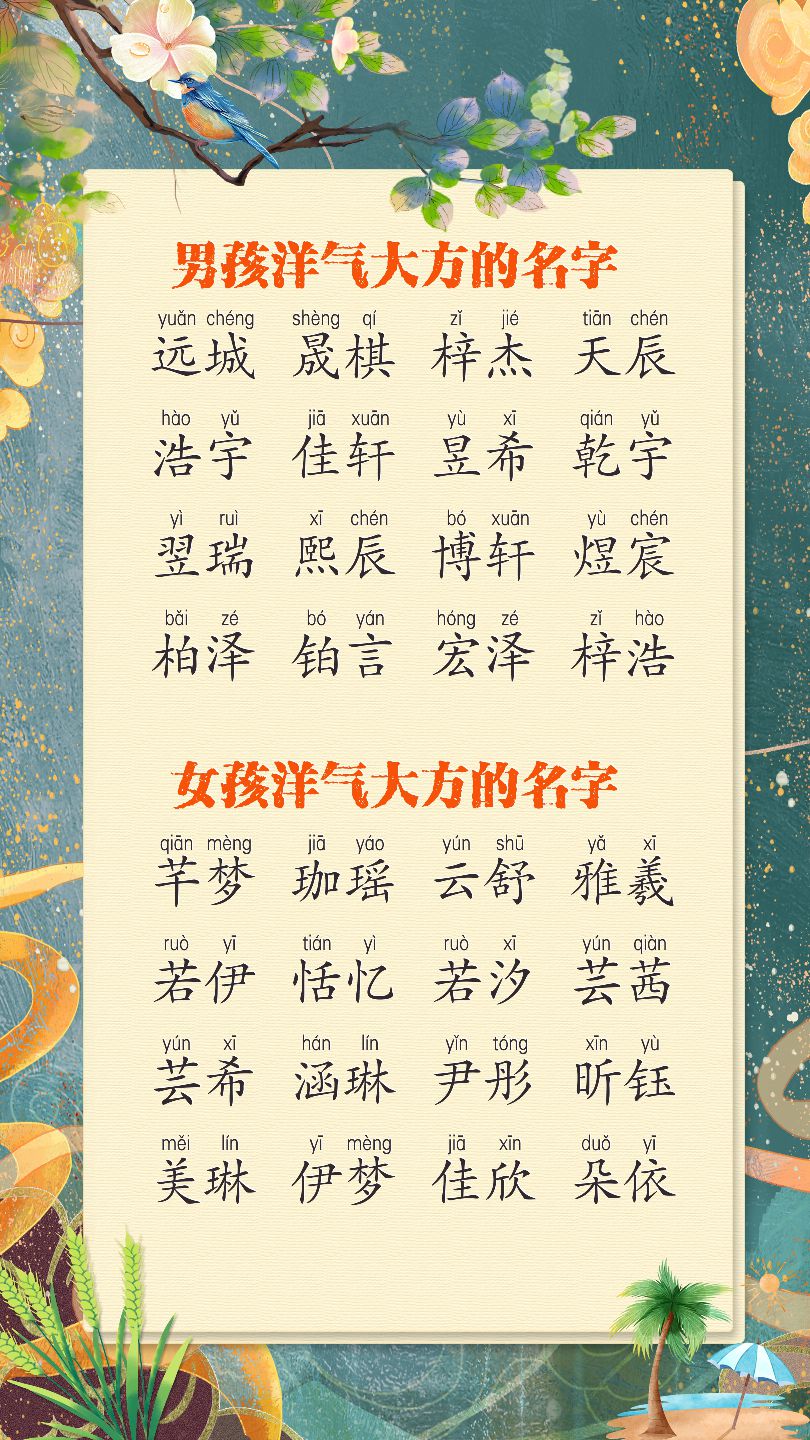 男孩洋气大方的名字
yuǎn chéng shèng qí zǐ jié tiān chén
远城 晟棋 梓杰 天辰
hào yǔ jiā xuān yù xī qián yǔ
浩宇 佳轩 昱希 乾宇
yì ruì xī chén bó xuān yù chén
翌瑞 熙辰 博轩 煜宸
bǎi zé bó yán hóng zé zǐ hào
柏泽 铂言 宏泽 梓浩
女孩洋气大方的名字
qiān mèng jiā yáo yún shū yǎ xī
芊梦 珈瑶 云舒 雅羲
ruò yī tián yì ruò xī yún qiàn
若伊 恬忆 若汐 芸茜
yún xī hán lín yǐn tóng xīn yù
芸希 涵琳 尹彤 昕钰
měi lín yī mèng jiā xīn duǒ yī
美琳 伊梦 佳欣 朵依